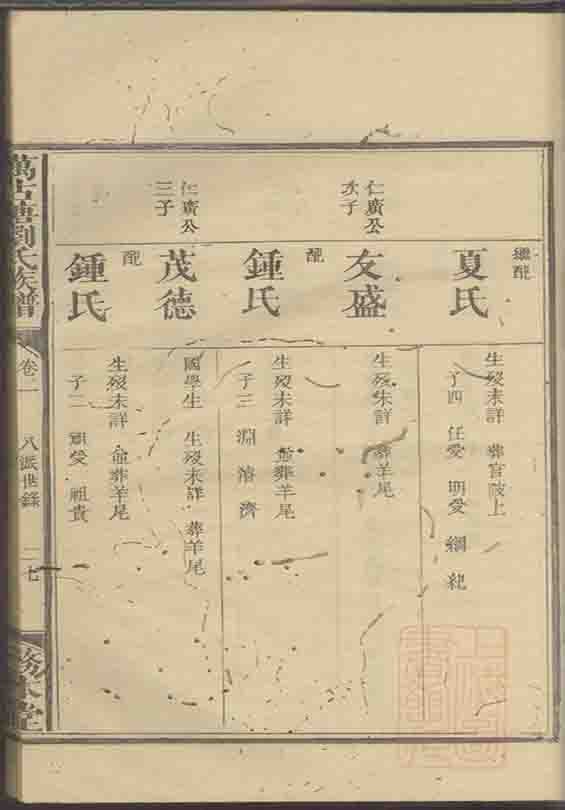 繼配
夏氏
生歿未詳 葬官陂上
子四 任愛 明愛 綱 紀
仁廣公
次子
友盛
生歿未詳 葬羊尾
配
鍾氏
生歿未詳 並葬羊尾
子三 淵 濬 濟
仁廣公
三子
茂德
國學生 生歿未詳 葬羊尾
配
鍾氏
生歿未詳 並葬羊尾
子二 愛 祖貴
萬古塘劉氏族譜
卷二
八派世錄
二七
務本堂